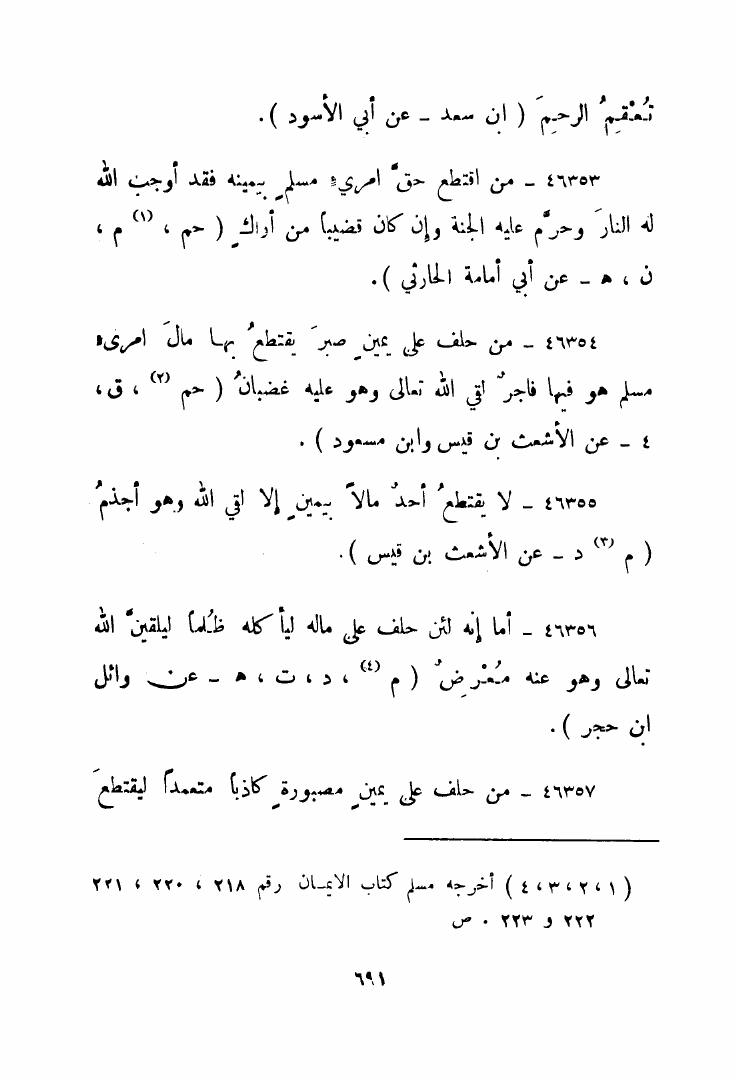 تُعْقِمُ الرحِمَ ( ابن سعد ـ عن أبي الأسود ) .
٤٦٣٥٣ ـ من اقتطع حقَّ امريءٍ مسلمٍ بيمينه فقد أوجب الله
له النارَ وحرَّم عليه الجنة وإن كان قضيباً من أراكٍ ( حم ، (١) م ،
ن ، هـ ـ عن أبي أمامة الحارثي ) .
٤٦٣٥٤ ـ من حلف على يمينٍ صبرَ يقتطعُ بها مالَ امرىء
مسلم هو فيها فاجرٌ لقي الله تعالى وهو عليه غضبانُ ( حم (٢) ، ق ،
٤ ـ عن الأشعث بن قيس وابن مسعود ) .
٤٦٣٥٥ ـ لا يقتطعُ أحدٌ مالاً بيمينٍ إلا لقي الله وهو أجذمُ
( م (٣) د ـ عن الأشعث بن قيس ) .
٤٦٣٥٦ ـ أما إنه لئن حلف على ماله ليأكله ظُلماً ليلقينَّ الله
تعالى وهو عنه مُعْرِضٌ ( م (٤) ، د ، ت ، هـ ـ عن وائل
ابن حجر ) .
٤٦٣٥٧ ـ من حلف على يمينٍ مصبورةٍ كاذباً متعمداً ليقتطعَ
( ١ ، ٢ ، ٣ ، ٤ ) أخرجه مسلم كتاب الايمان رقم ٢١٨ ، ٢٢٠ ، ٢٢١
٢٢٢ و ٢٢٣ . ص
٦٩١